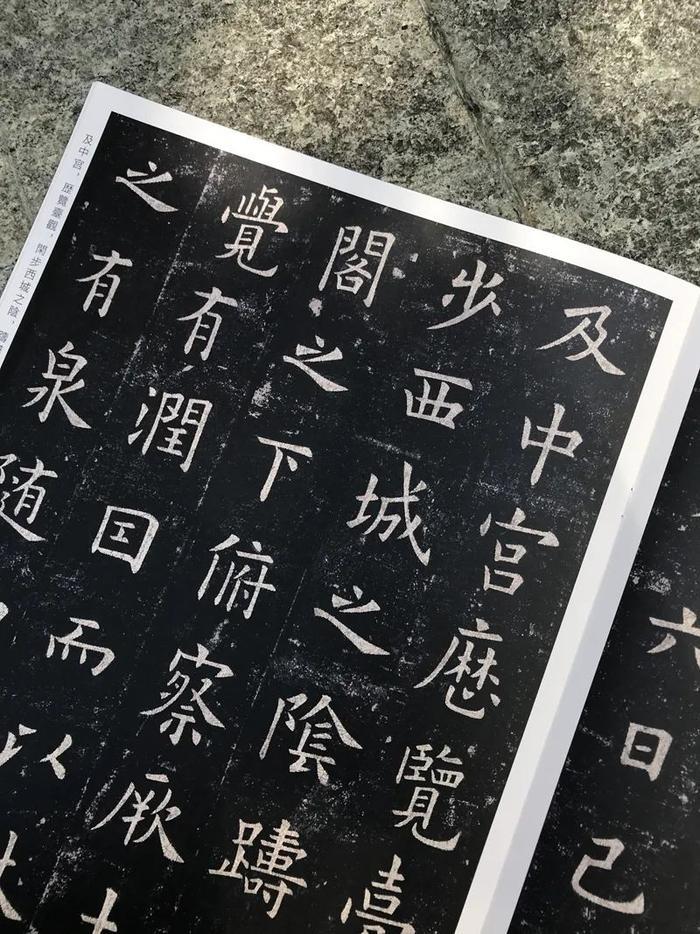 六日己
及中宮歴覽臺
步西城之陰躊
閣之下俯察厥土
覺有潤囙而以杖
之有泉随
及中宮，歷覽臺觀，閑步西城之陰，躊